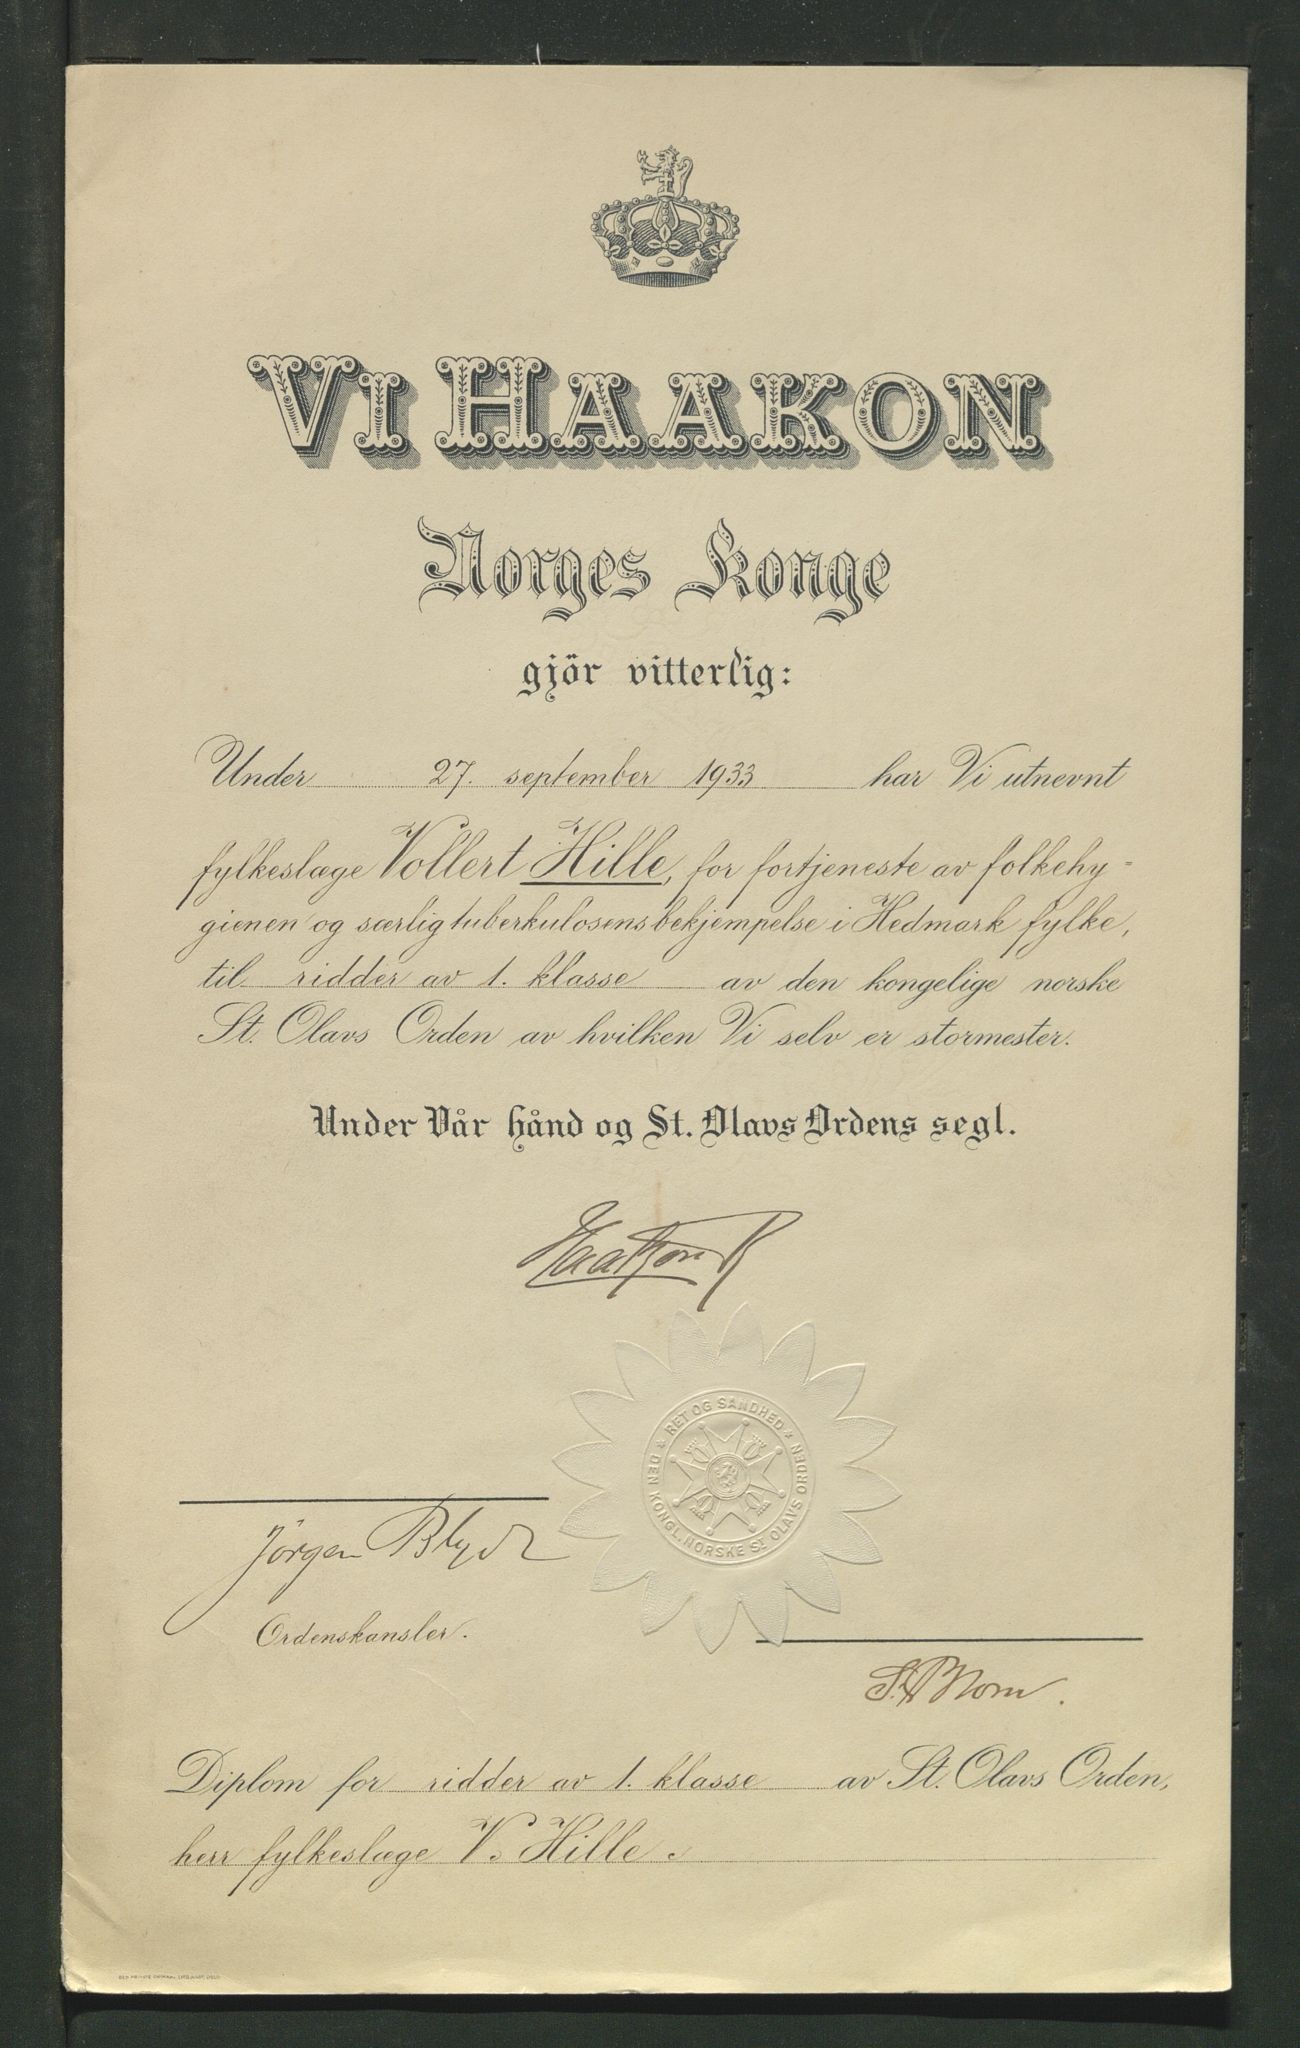 VI HAAKON
Norges Konge
gjör vitterlig:
Under 27. september 1933 har Vi utnevnt
fylkeslæge Vollert Hille, for fortjeneste av folkehy-
gienen og særlig tuberkulosens bekjempelse i Hedmark fylke,
til ridder av 1. klasse av den kongelige norske
St. Olavs Orden av hvilken Vi selv er stormester.
Under Vår hånd og St. Olavs Ordens segl.
Haakon R
RET OG SANDHED
DEN KONGL. NORSKE ST OLAVS ORDEN
Jörgen
Ordenskansler.
Diplom for ridder av 1. klasse av St. Olavs Orden,
herr fylkeslæge V. Hille.